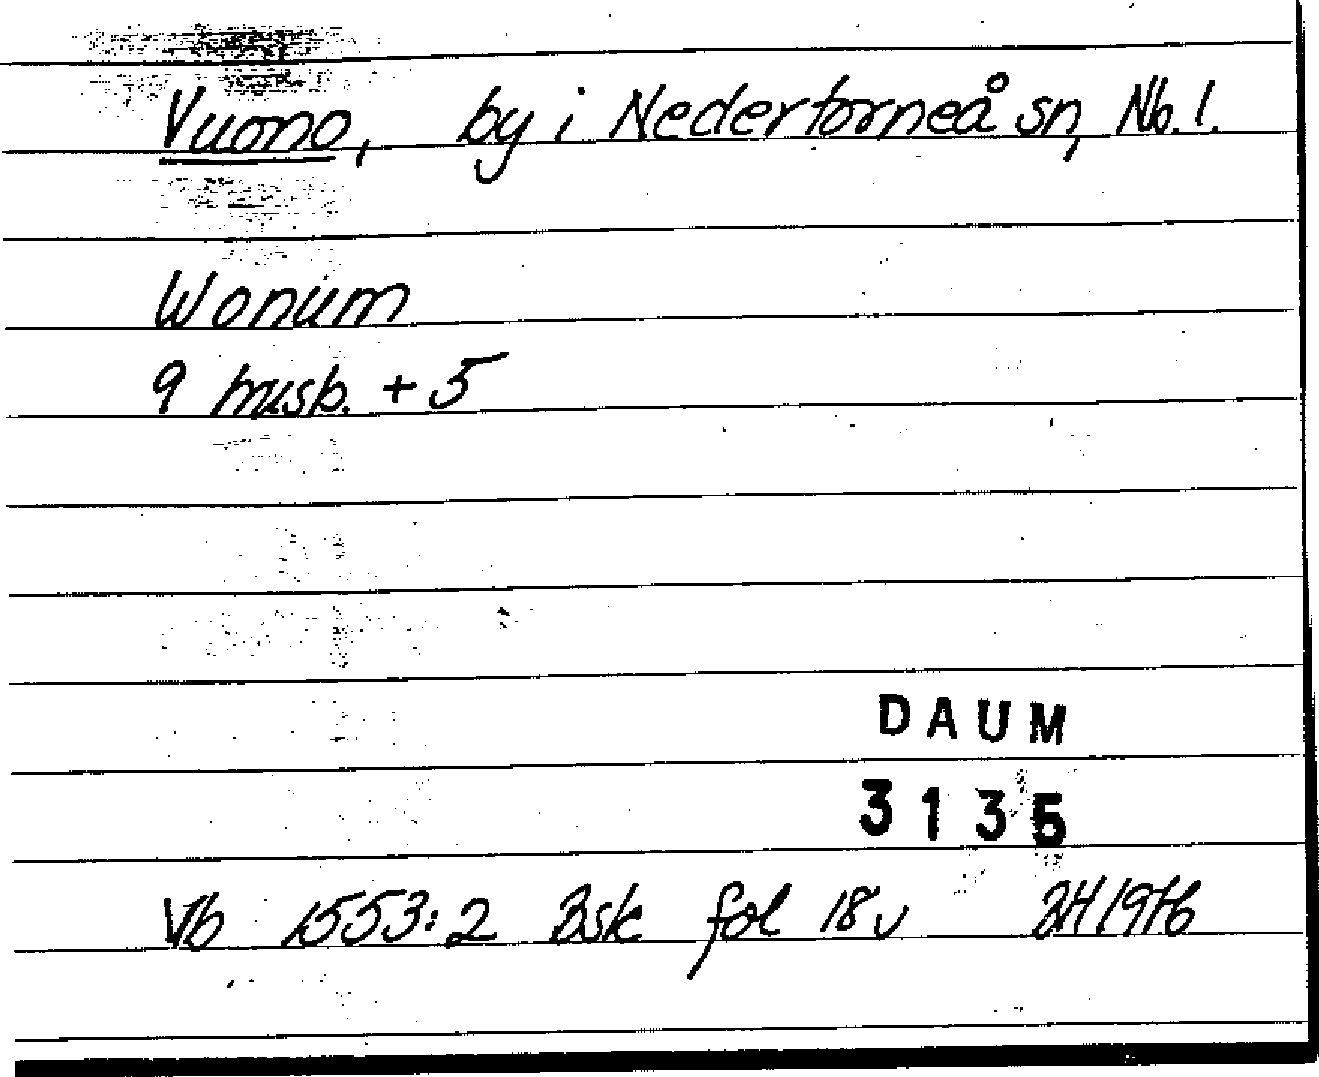 Vuono, by i Nedertorneå sn, Nb. l.
Wonum
9 husb. + 5
DAUM
3135
Vb 1553:2 Bsk fol 18 v 1976